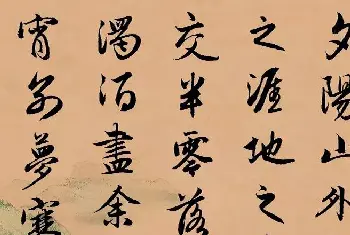 夕陽山外
之涯地之
交半零落
濁酒盡余
宵别夢寒